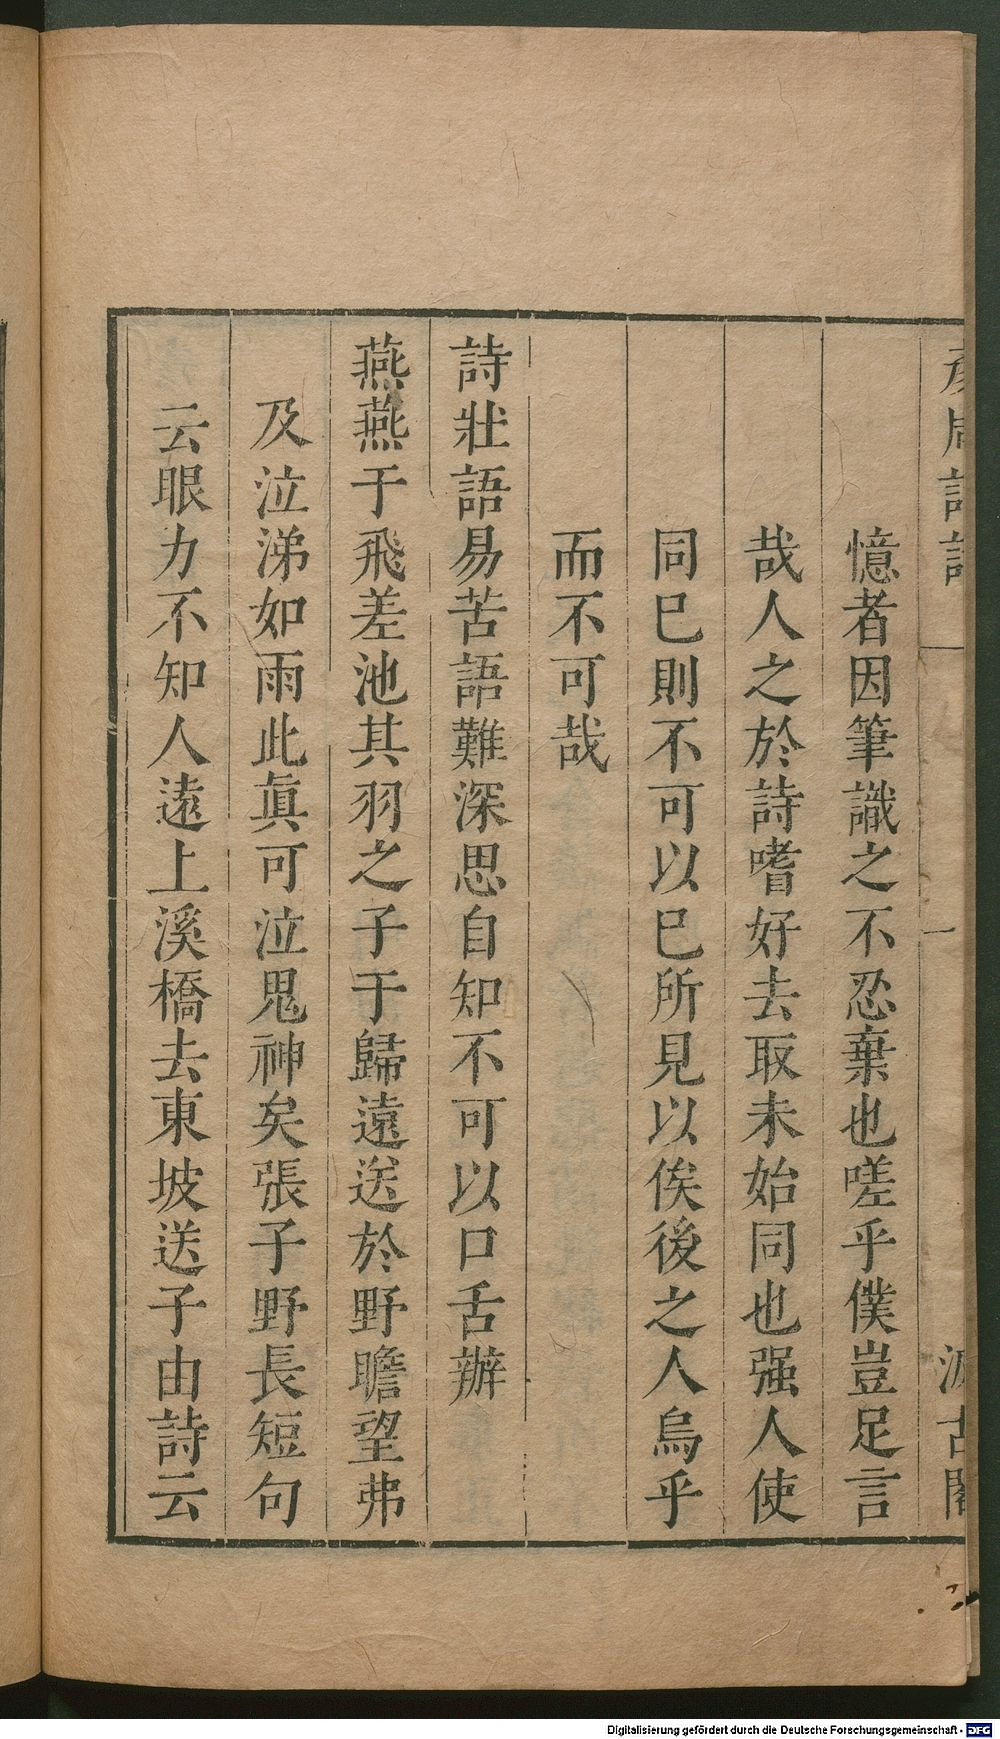 彥周詩話　一　汲古閣
憶者因筆識之不忍棄也嗟乎僕豈足言
哉人之於詩嗜好去取未始同也强人使
同巳則不可以巳所見以俟後之人烏乎
而不可哉
詩壯語易苦語難深思自知不可以口舌辦
燕燕于飛差池其羽之子于歸遠送於野瞻望弗
及泣涕如雨此眞可泣鬼神矣張子野長短句
云眼力不知人遠上溪橋去東坡送子由詩云
Digitalisierung gefördert durch die Deutsche Forschungsgemeinschaft - DFG